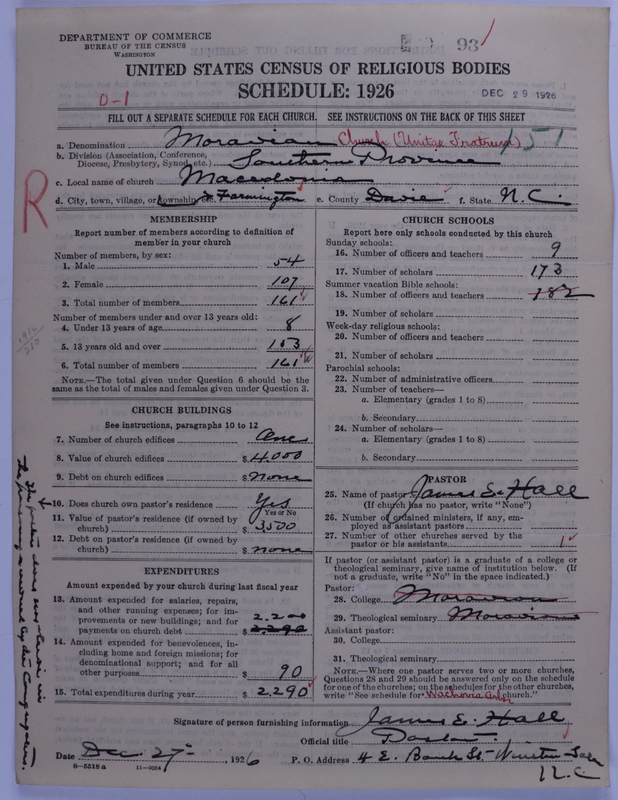 DEPARTMENT OF COMMERCE
BUREAU OF THE CENSUS
WASHINGTON
93
UNITED STATES CENSUS OF RELIGIOUS BODIES
SCHEDULE: 1926
DEC 29 1926
0-1
FILL OUT A SEPARATE SCHEDULE FOR EACH CHURCH. SEE INSTRUCTIONS ON THE BACK OF THIS SHEET
a. Denomination Moravian Church (Unitas Fratrum) 151
b. Division (Association, Conference, Diocese, Presbytery, Synod, etc.) Southern Province
c. Local name of church Macedonia
d. City, town, village, or township, etc. Farmington e. County Davie f. State N.C.
R
MEMBERSHIP
Report number of members according to definition of member in your church
Number of members, by sex:
1. Male 54
2. Female 107
3. Total number of members 161
Number of members under and over 13 years old:
4. Under 13 years of age 8
5. 13 years old and over 153
6. Total number of members 161
NOTE.—The total given under Question 6 should be the same as the total of males and females given under Question 3.
CHURCH BUILDINGS
See instructions, paragraphs 10 to 12
7. Number of church edifices One
8. Value of church edifices $ 4.000
9. Debt on church edifices $ None
10. Does church own pastor's residence Yes
Yes or No
11. Value of pastor's residence (if owned by church) $ 3,500
12. Debt on pastor's residence (if owned by church) $ none
The pastor does not live in
the parsonage owned by the Congregation.
EXPENDITURES
Amount expended by your church during last fiscal year
13. Amount expended for salaries, repairs, and other running expenses; for improvements or new buildings; and for payments on church debt $ 2.290 2.200
14. Amount expended for benevolences, including home and foreign missions; for denominational support; and for all other purposes $ 90
15. Total expenditures during year $ 2.290
CHURCH SCHOOLS
Report here only schools conducted by this church
Sunday schools:
16. Number of officers and teachers 9
17. Number of scholars 173
Summer vacation Bible schools:
18. Number of officers and teachers 182
19. Number of scholars
Week-day religious schools:
20. Number of officers and teachers
21. Number of scholars
Parochial schools:
22. Number of administrative officers
23. Number of teachers—
a. Elementary (grades 1 to 8)
b. Secondary
24. Number of scholars—
a. Elementary (grades 1 to 8)
b. Secondary
PASTOR
25. Name of pastor James E. Hall
(If church has no pastor, write "None")
26. Number of ordained ministers, if any, employed as assistant pastors
27. Number of other churches served by the pastor or his assistants 1
If pastor (or assistant pastor) is a graduate of a college or theological seminary, give name of institution below. (If not a graduate, write "No" in the space indicated.)
Pastor:
28. College Moravian
29. Theological seminary Moravian
Assistant pastor:
30. College
31. Theological seminary
NOTE.—Where one pastor serves two or more churches, Questions 28 and 29 should be answered only on the schedule for one of the churches; on the schedules for the other churches, write "See schedule for Wachovia Arbor church."
Signature of person furnishing information James E. Hall
Official title Pastor
Date Dec. 27 , 1926 P. O. Address 4 E. Bank St. Winston-Salem
N.C.
8—5518 a 11—9034